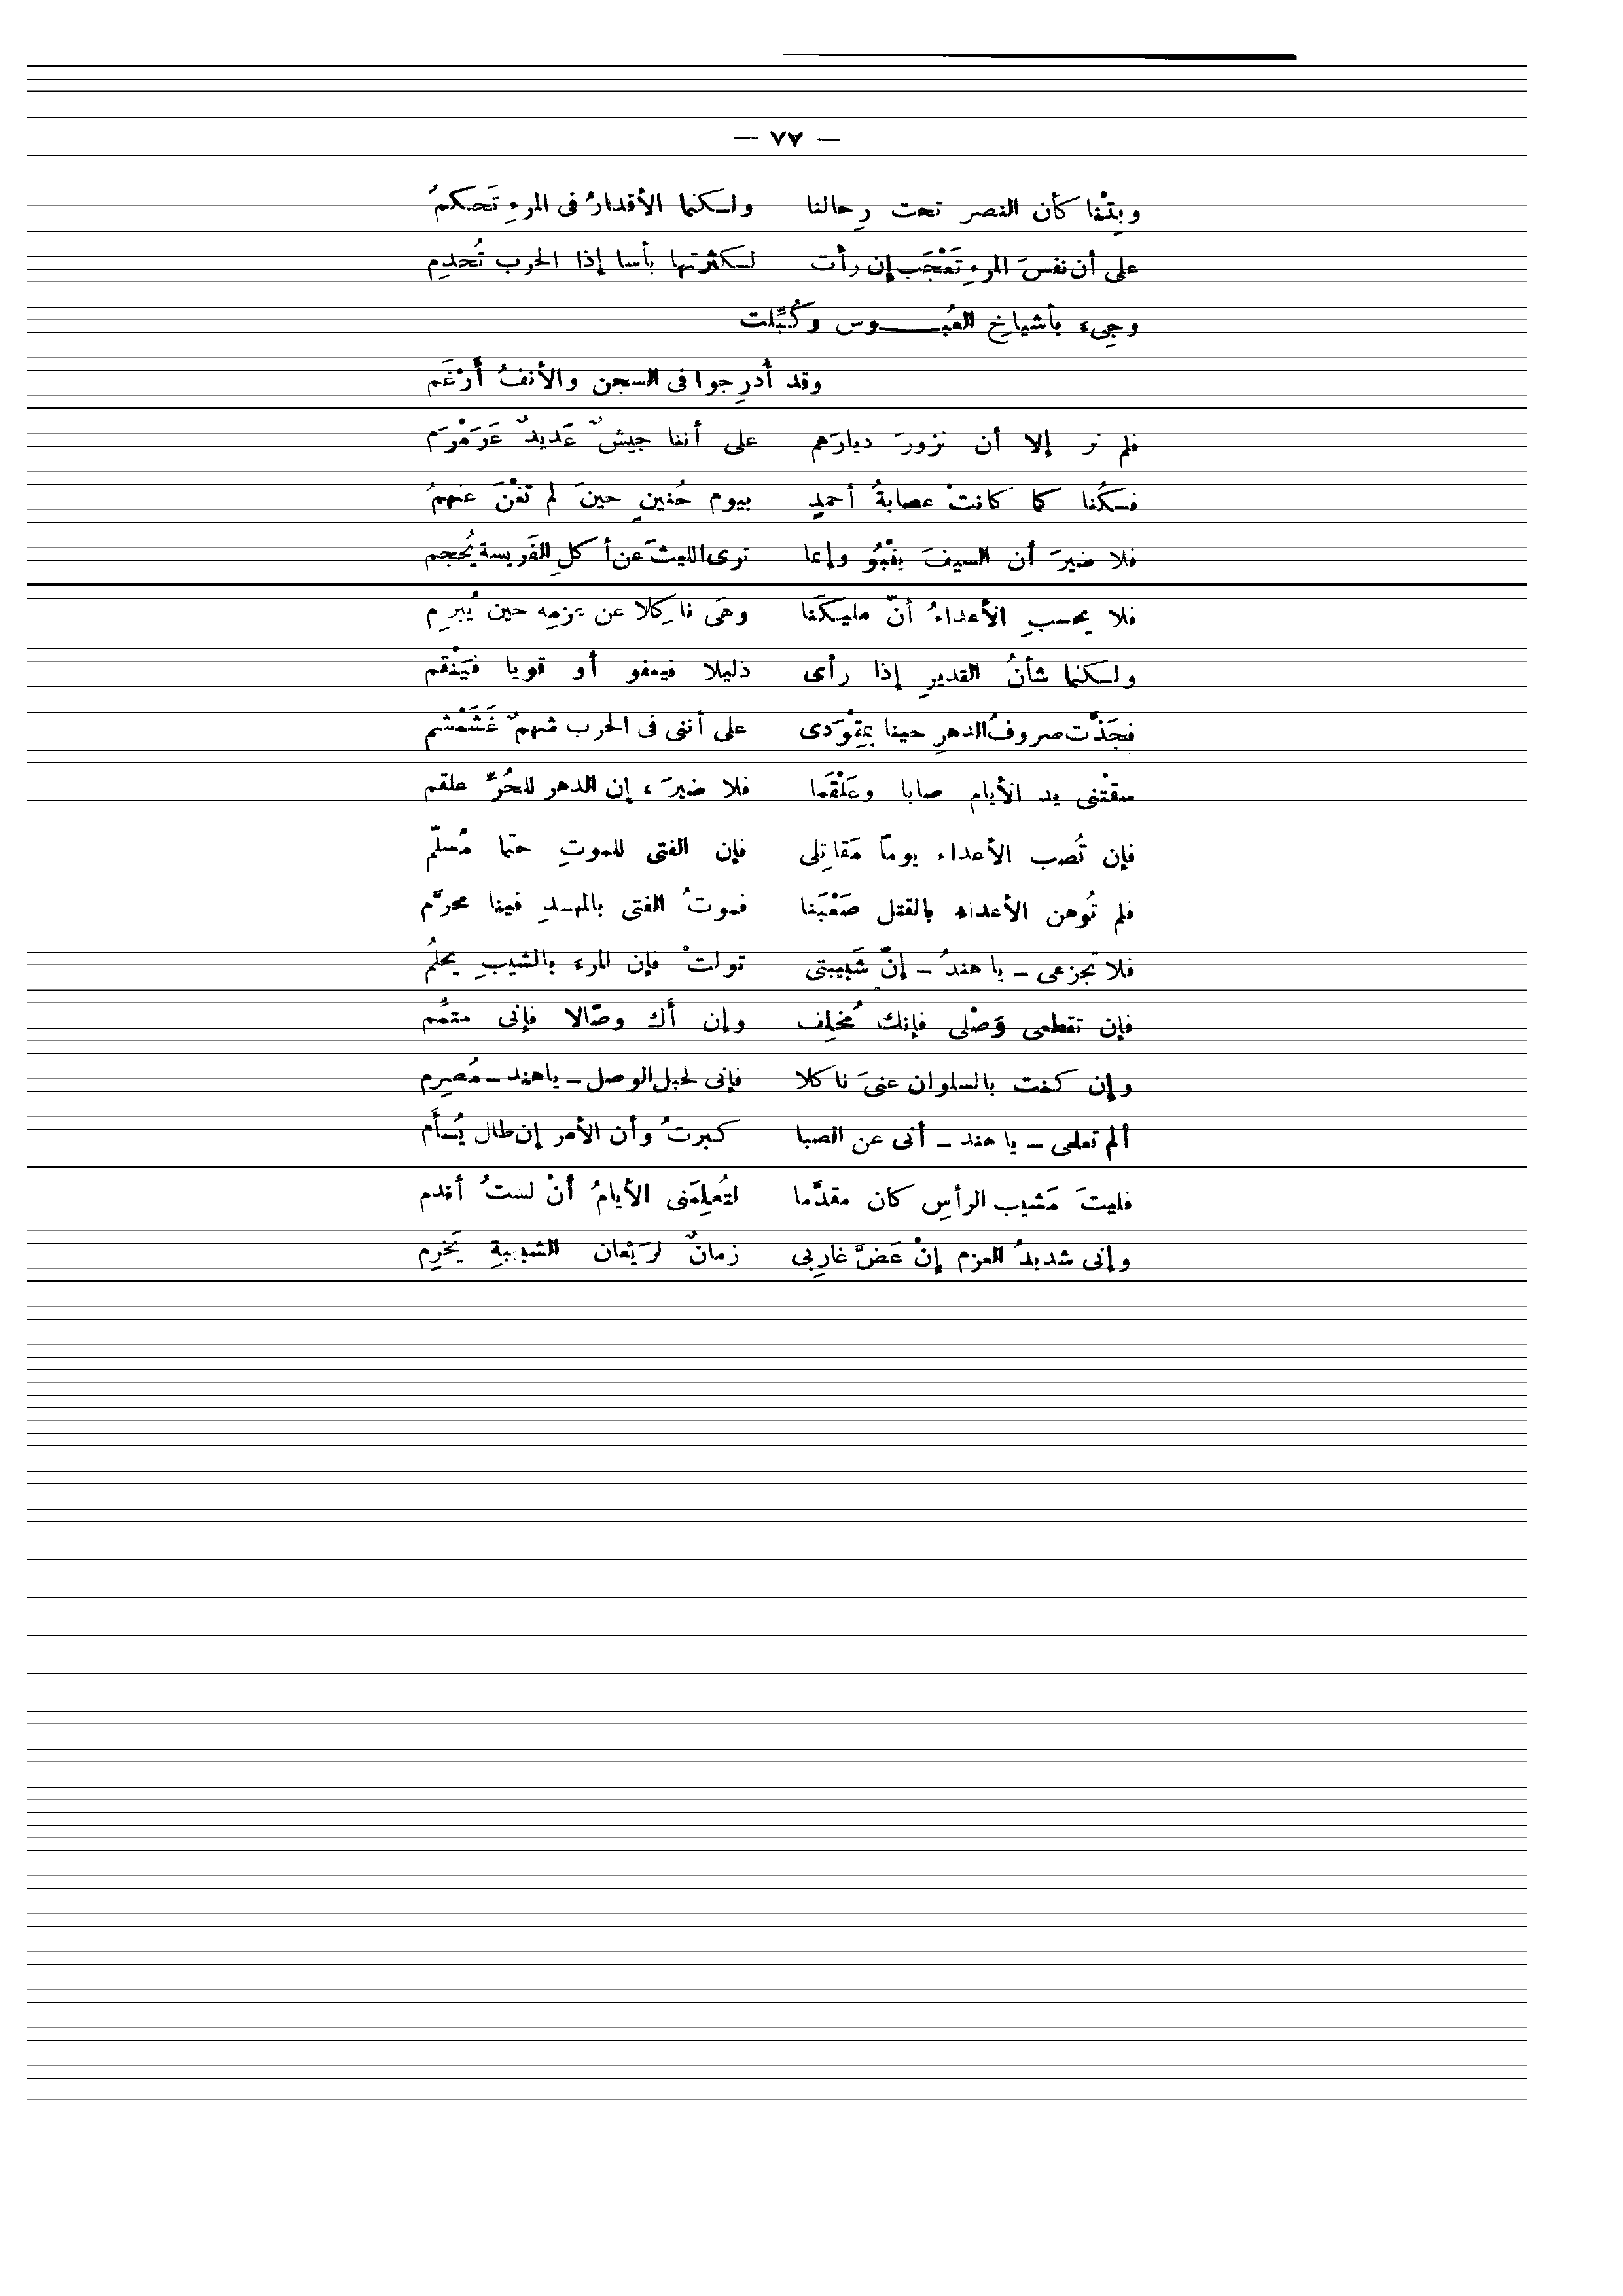 — ٧٧ —
وبِتْنا كأن النصر تحت رِحالنا ولكنما الأقدارُ فى المرءِ تَحكمُ
على أن نفسَ المرءِ تَعْجَب إن رأت لكثرتها بأسا إذا الحرب تُحدِم
وجِىء بأشياخِ العُبـــوس وكُبِّلت
وقد أُدرِجوا فى السجن والأنفُ أَرْغَم
فلم نر إلا أن نزورَ ديارَهم على أننا جيشٌ عَديدٌ عَرَمْرَم
فكُنا كما كانتْ عصابةُ أحمدٍ بيوم حُنينٍ حينَ لم تغْنَ عنهمُ
فلا ضيرَ أن السيفَ ينْبُو وإنما ترى الليثَ عن أكلِ الفَريسة يُحجم
فلا يحسبِ الأعداءُ أنّ مليكَنا وهَى ناكِلا عن عزمِه حين يُبرِم
ولكنما شأنُ القديرِ إذا رأى ذليلا فيعفو أو قويا فيَنْقم
فجَذَّت صروفُ الدهرِ حينا بمِقْوَدى على أننى فى الحرب شهمٌ غَشَمْشَم
سقتْنى يد الأيام صابا وعَلْقَما فلا ضيرَ ، إن الدهر للحُرِّ علقم
فإن تُصب الأعداء يوماً مَقاتِلى فإن الفتى للموتِ حتما مُسلّم
فلم تُوهن الأعداء بالقتل صَعْبَنا فموتُ الفتى بالمهدِ فينا محرَّم
فلا تجزعى – يا هندُ – إنّ شَبيبتى تولتْ فإن المرء بالشيبِ يحلمُ
فإن تقطعى وَصْلى فإنك مُخلِف وإن أَك وصّالا فإنى متمِّم
وإن كنت بالسلوان عنىَ ناكلا فإنى لحبل الوصل – يا هند – مُصرِم
ألم تعلمى – يا هند – أنى عن الصبا كبرتُ وأن الأمر إن طال يُسأَم
فليتَ مَشيب الرأسِ كان مقدَّما لتُعلِمَنى الأيامُ أنْ لستُ أندم
وإنى شديدُ العزم إنْ عَضَّ غارِبى زمانٌ لرَيْعان الشبيبةِ يَخرِم